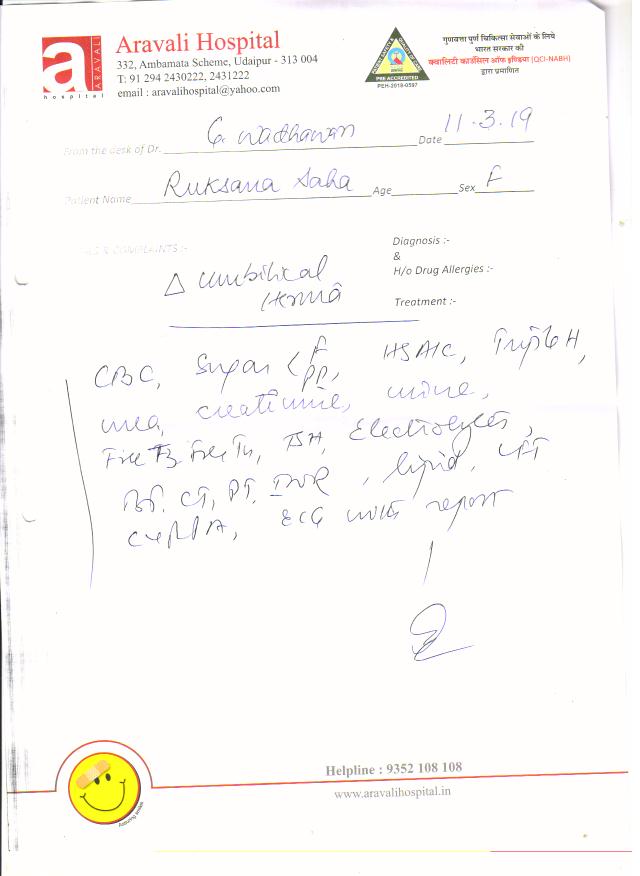 a ARAVALI
hospital
Aravali Hospital
332, Ambamata Scheme, Udaipur - 313 004
T: 91 294 2430222, 2431222
email : aravalihospital@yahoo.com
PRE ACCREDITED
PEH-2018-0597
गुणवत्ता पुर्ण चिकित्सा सेवाओं के लिये
भारत सरकार की
क्वालिटी काउंसिल ऑफ इण्डिया (QCI-NABH)
द्वारा प्रमाणित
From the desk of Dr. G. Wadhawan Date 11.3.19
Patient Name Ruksana Saha Age Sex F
& COMPLAINTS :-
Diagnosis :-
&
H/o Drug Allergies :-
Treatment :-
Δ Umbilical
Hernia
CBC, Sugar < F PP, Triple H,
urea, creatinine, urine,
Free T3 Free T4, TSH, Electrolytes,
BT, CT, PT, INR, lipid, LFT
CxR PA, ECG with report
Helpline : 9352 108 108
www.aravalihospital.in